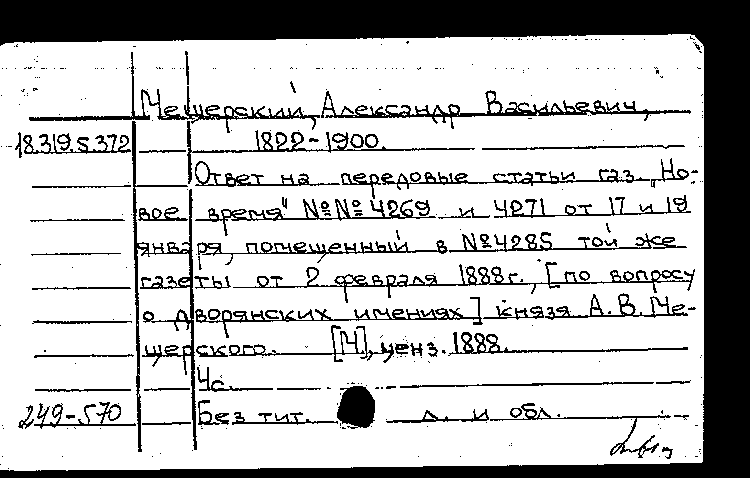 Мещерский, Александр Васильевич,
18.319.5.372 1822-1900.
Ответ на передовые статьи газ. „Но-
вое время" №№ 4269 и 4271 от 17 и 19
января, помещенный в №4285 той же
газеты от 2 февраля 1888г., [по вопросу
о дворянских имениях] князя А.В. Ме-
щерского. [М.], ценз. 1888.
4с.
249-570 Без тит. л. и обл.